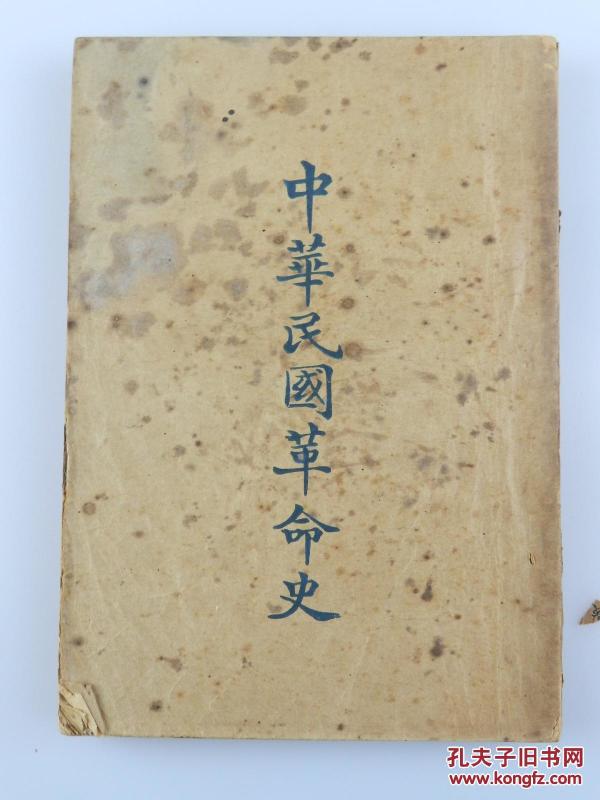 中華民國革命史
孔夫子旧书网
www.kongfz.com